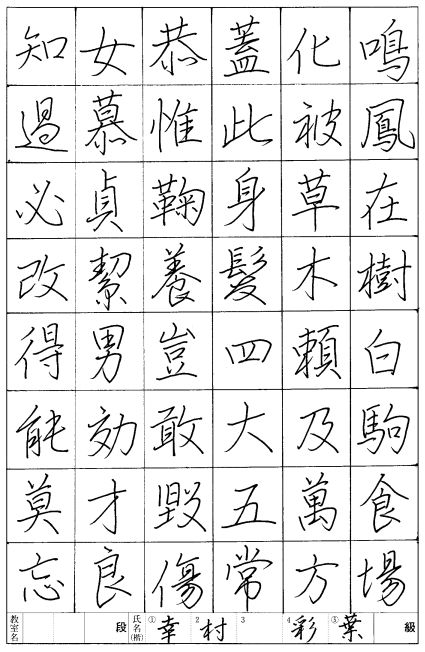 鳴鳳在樹白駒食場
化被草木頼及萬方
蓋此身髮四大五常
恭惟鞠養豈敢毀傷
女慕貞絜男効才良
知過必改得能莫忘
教室名 段 氏名(楷) ①幸 2村 3 4彩 ⑤葉 級